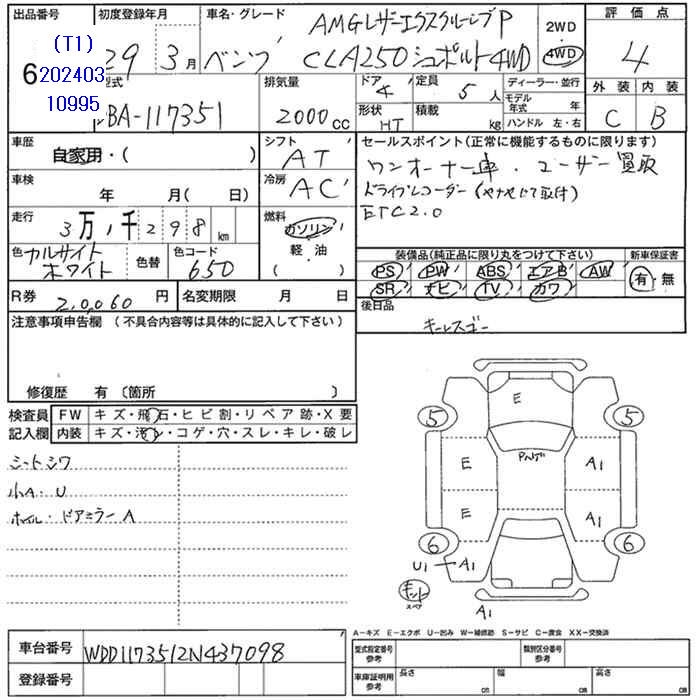 出品番号 初度登録年月 車名・グレード 評価点
(T1)
6 202403
10995
29 3月
AMGレザーエクスクルーシブP
ベンツ CLA250シュポルト4WD
2WD
4WD
4
型式 排気量 ドア 定員 ディーラー・並行 外装 内装
BA-117351 2000cc 4 5人 モデル年式 年
形状 積載 kg ハンドル 左・右
HT
C B
車歴 自家用・( ) シフト AT
セールスポイント(正常に機能するものに限ります)
ワンオーナー車・ユーザー買取
ドライブレコーダー(ヤナセにて取付)
ETC2.0
車検 年 月( 日) 冷房 AC
走行 3万1千298km 燃料 ガソリン
軽・油
( )
色 カルサイト
ホワイト
色替 色コード 650
装備品(純正品に限り丸をつけて下さい) 新車保証書
PS PW ABS エアB AW
SR ナビ TV カワ
有・無
R券 20,060円 名変期限 月 日
後日品
キーレスゴー
注意事項申告欄(不具合内容等は具体的に記入して下さい)
修復歴 有〔箇所 〕
検査員 FW キズ・飛石・ヒビ割・リペア跡・X要
記入欄 内装 キズ・汚レ・コゲ・穴・スレ・キレ・破レ
シートシワ
小A・U
ホイル・ドアミラーA
E
5 5
Pハゲ
E A1
E A1
6 6
U1 A1
キット
スペア
A1
A-キズ E-エクボ U-凹み W-補修跡 S-サビ C-腐食 XX-交換済
車台番号 WDD1173512N437098
登録番号
型式指定番号 参考 類別区分番号 参考
車庫証明用 参考 長さ cm 幅 cm 高さ cm